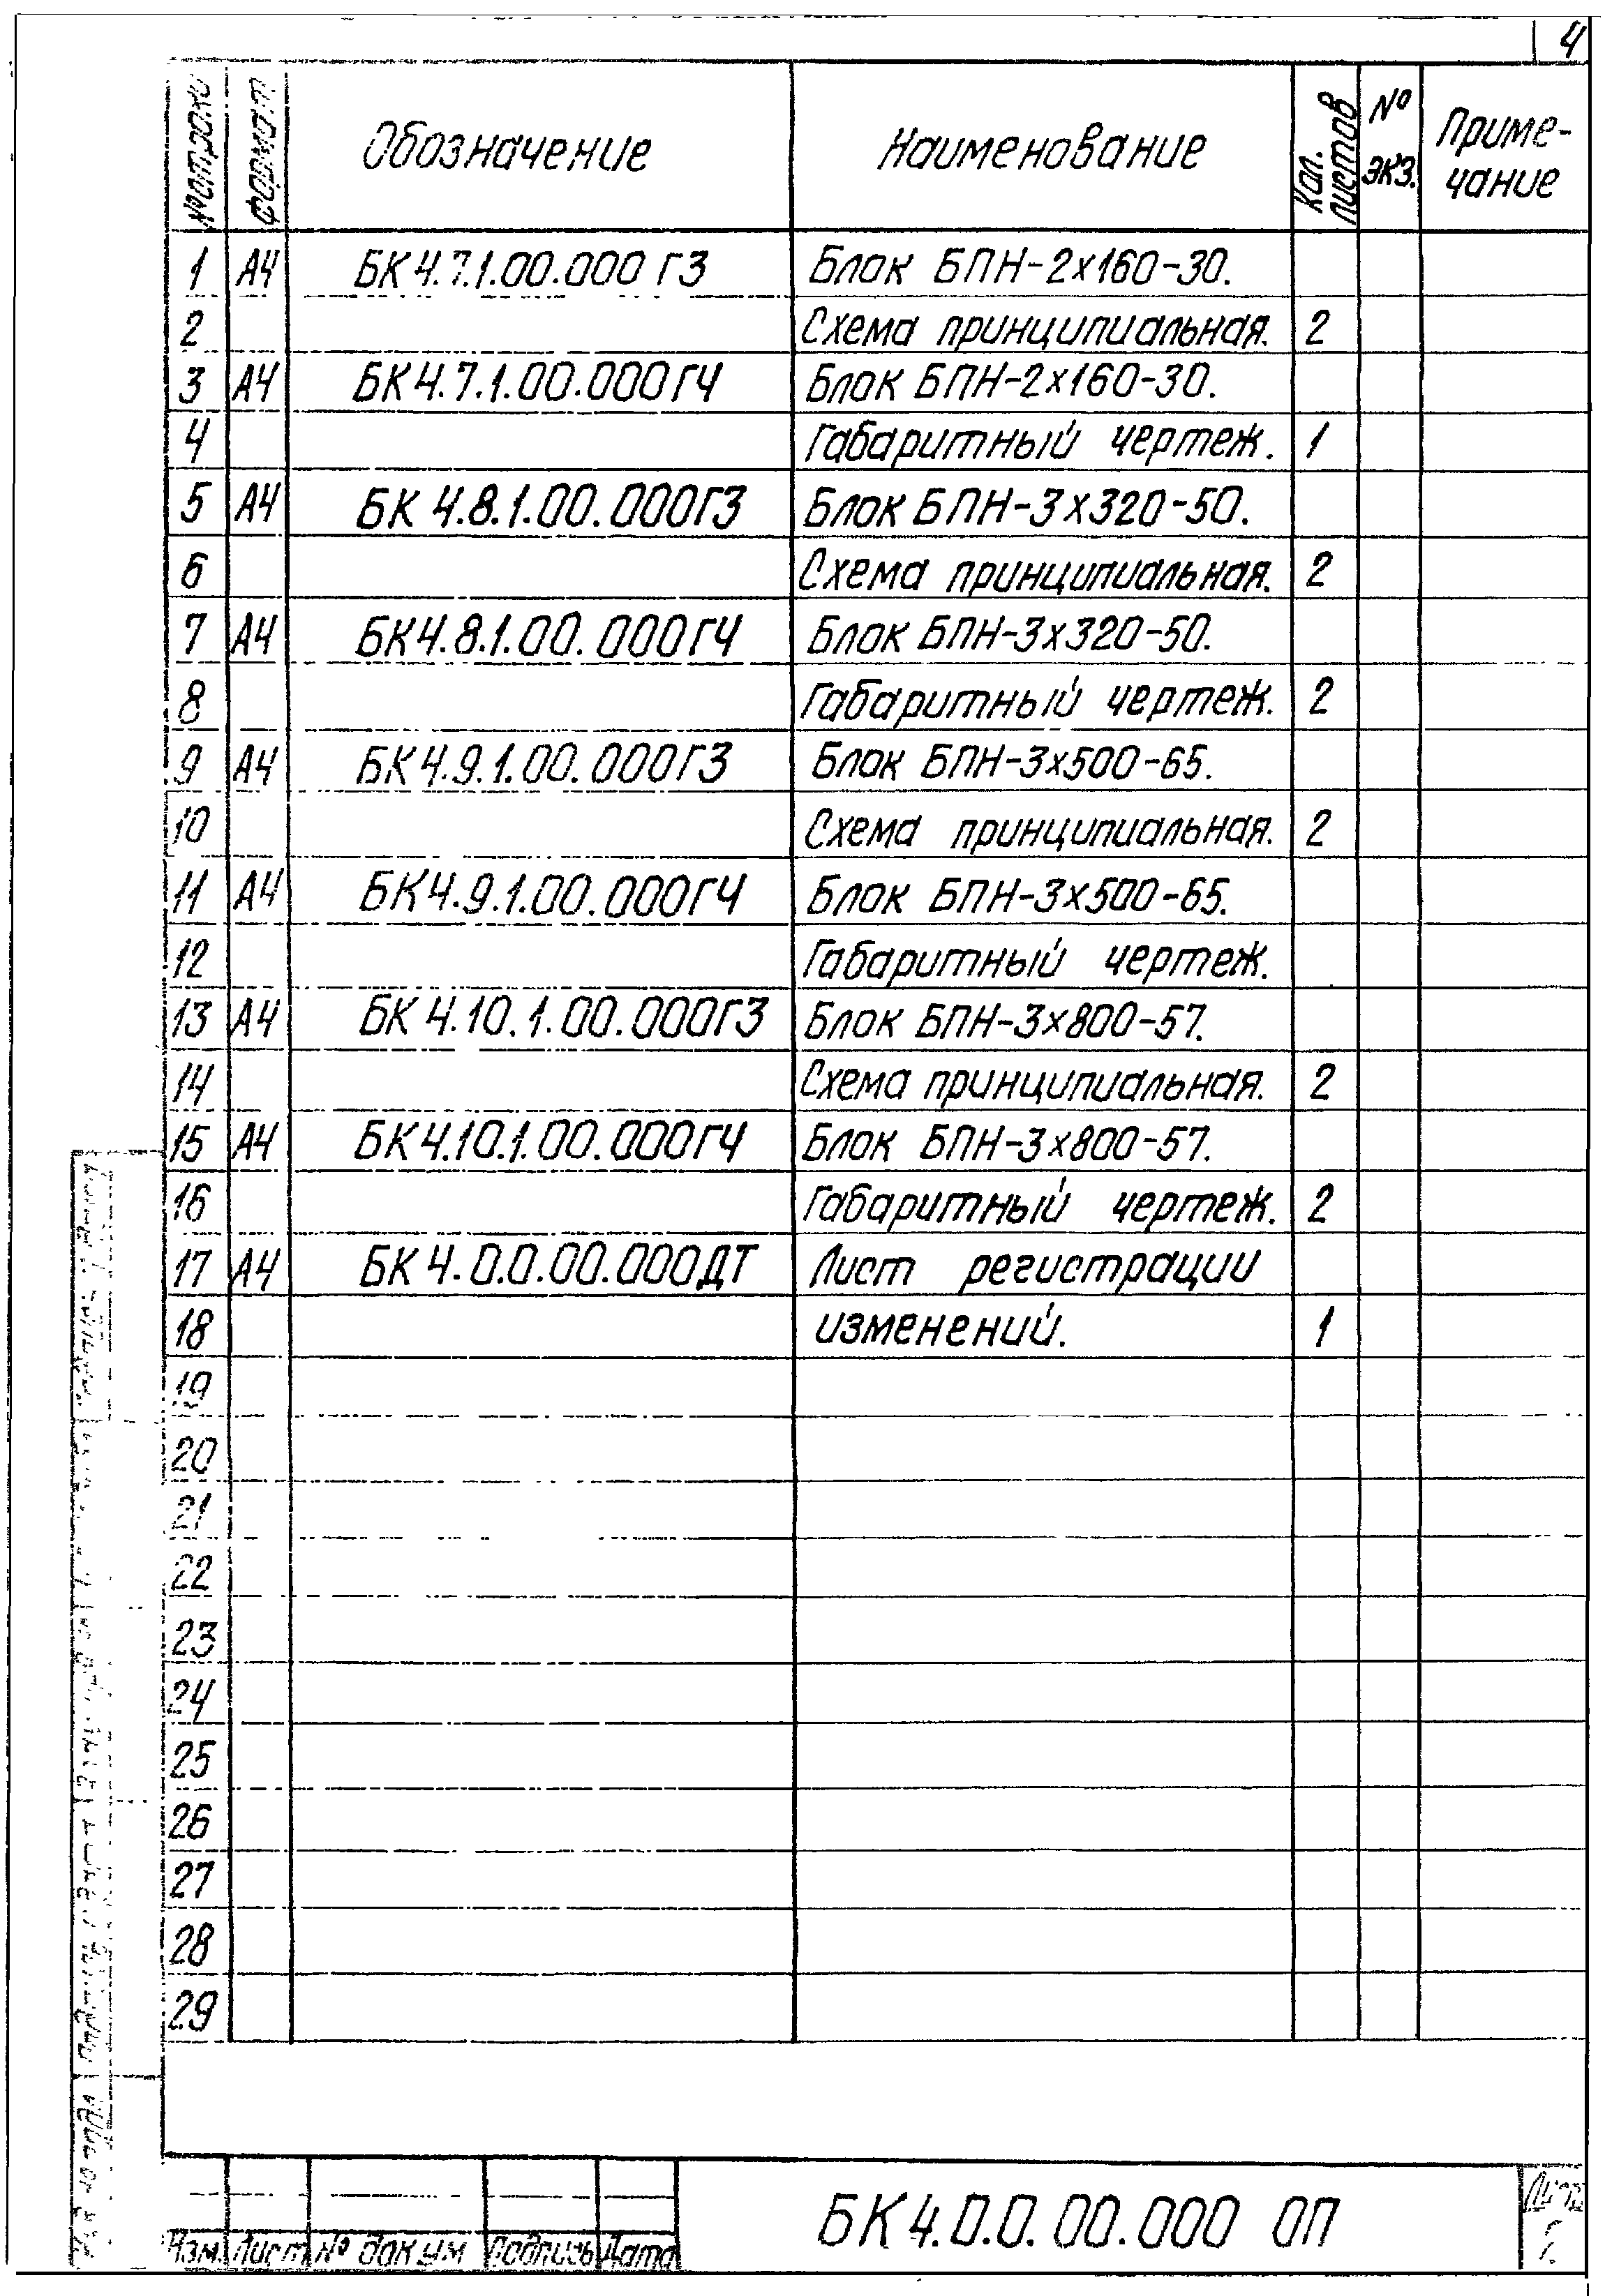 4
№ строки
Формат
Обозначение
Наименование
Кол. листов
№ экз.
Приме-
чание
1 А4 БК 4.7.1.00.000 ГЗ Блок БПН-2х160-30.
2 Схема принципиальная. 2
3 А4 БК 4.7.1.00.000ГЧ Блок БПН-2х160-30.
4 Габаритный чертеж. 1
5 А4 БК 4.8.1.00.000ГЗ Блок БПН-3х320-50.
6 Схема принципиальная. 2
7 А4 БК4.8.1.00.000ГЧ Блок БПН-3х320-50.
8 Габаритный чертеж. 2
9 А4 БК 4.9.1.00.000ГЗ Блок БПН-3х500-65.
10 Схема принципиальная. 2
11 А4 БК4.9.1.00.000ГЧ Блок БПН-3х500-65.
12 Габаритный чертеж.
13 А4 БК 4.10.1.00.000ГЗ Блок БПН-3х800-57.
14 Схема принципиальная. 2
15 А4 БК 4.10.1.00.000ГЧ Блок БПН-3х800-57.
16 Габаритный чертеж. 2
17 А4 БК 4.0.0.00.000ДТ Лист регистрации
18 изменений. 1
19
20
21
22
23
24
25
26
27
28
29
БК 4.0.0.00.000 ОП
Лист
Изм. Лист № докум Подпись Дата